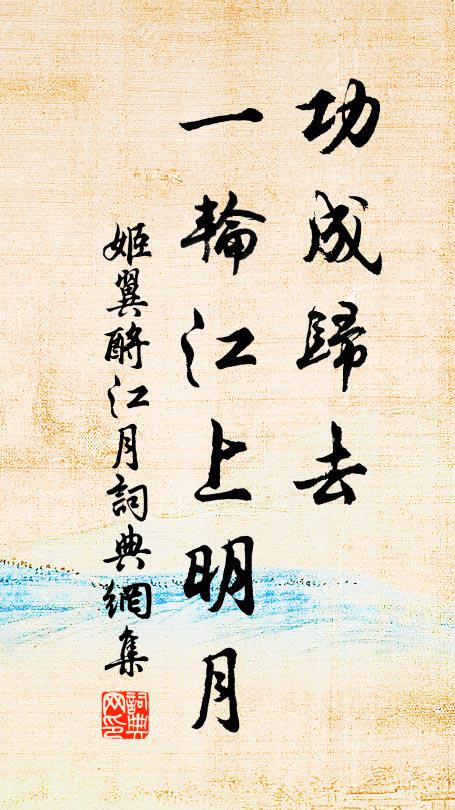 功成歸去
一輪江上明月
姬翼酹江月詞典網集
詞典網印